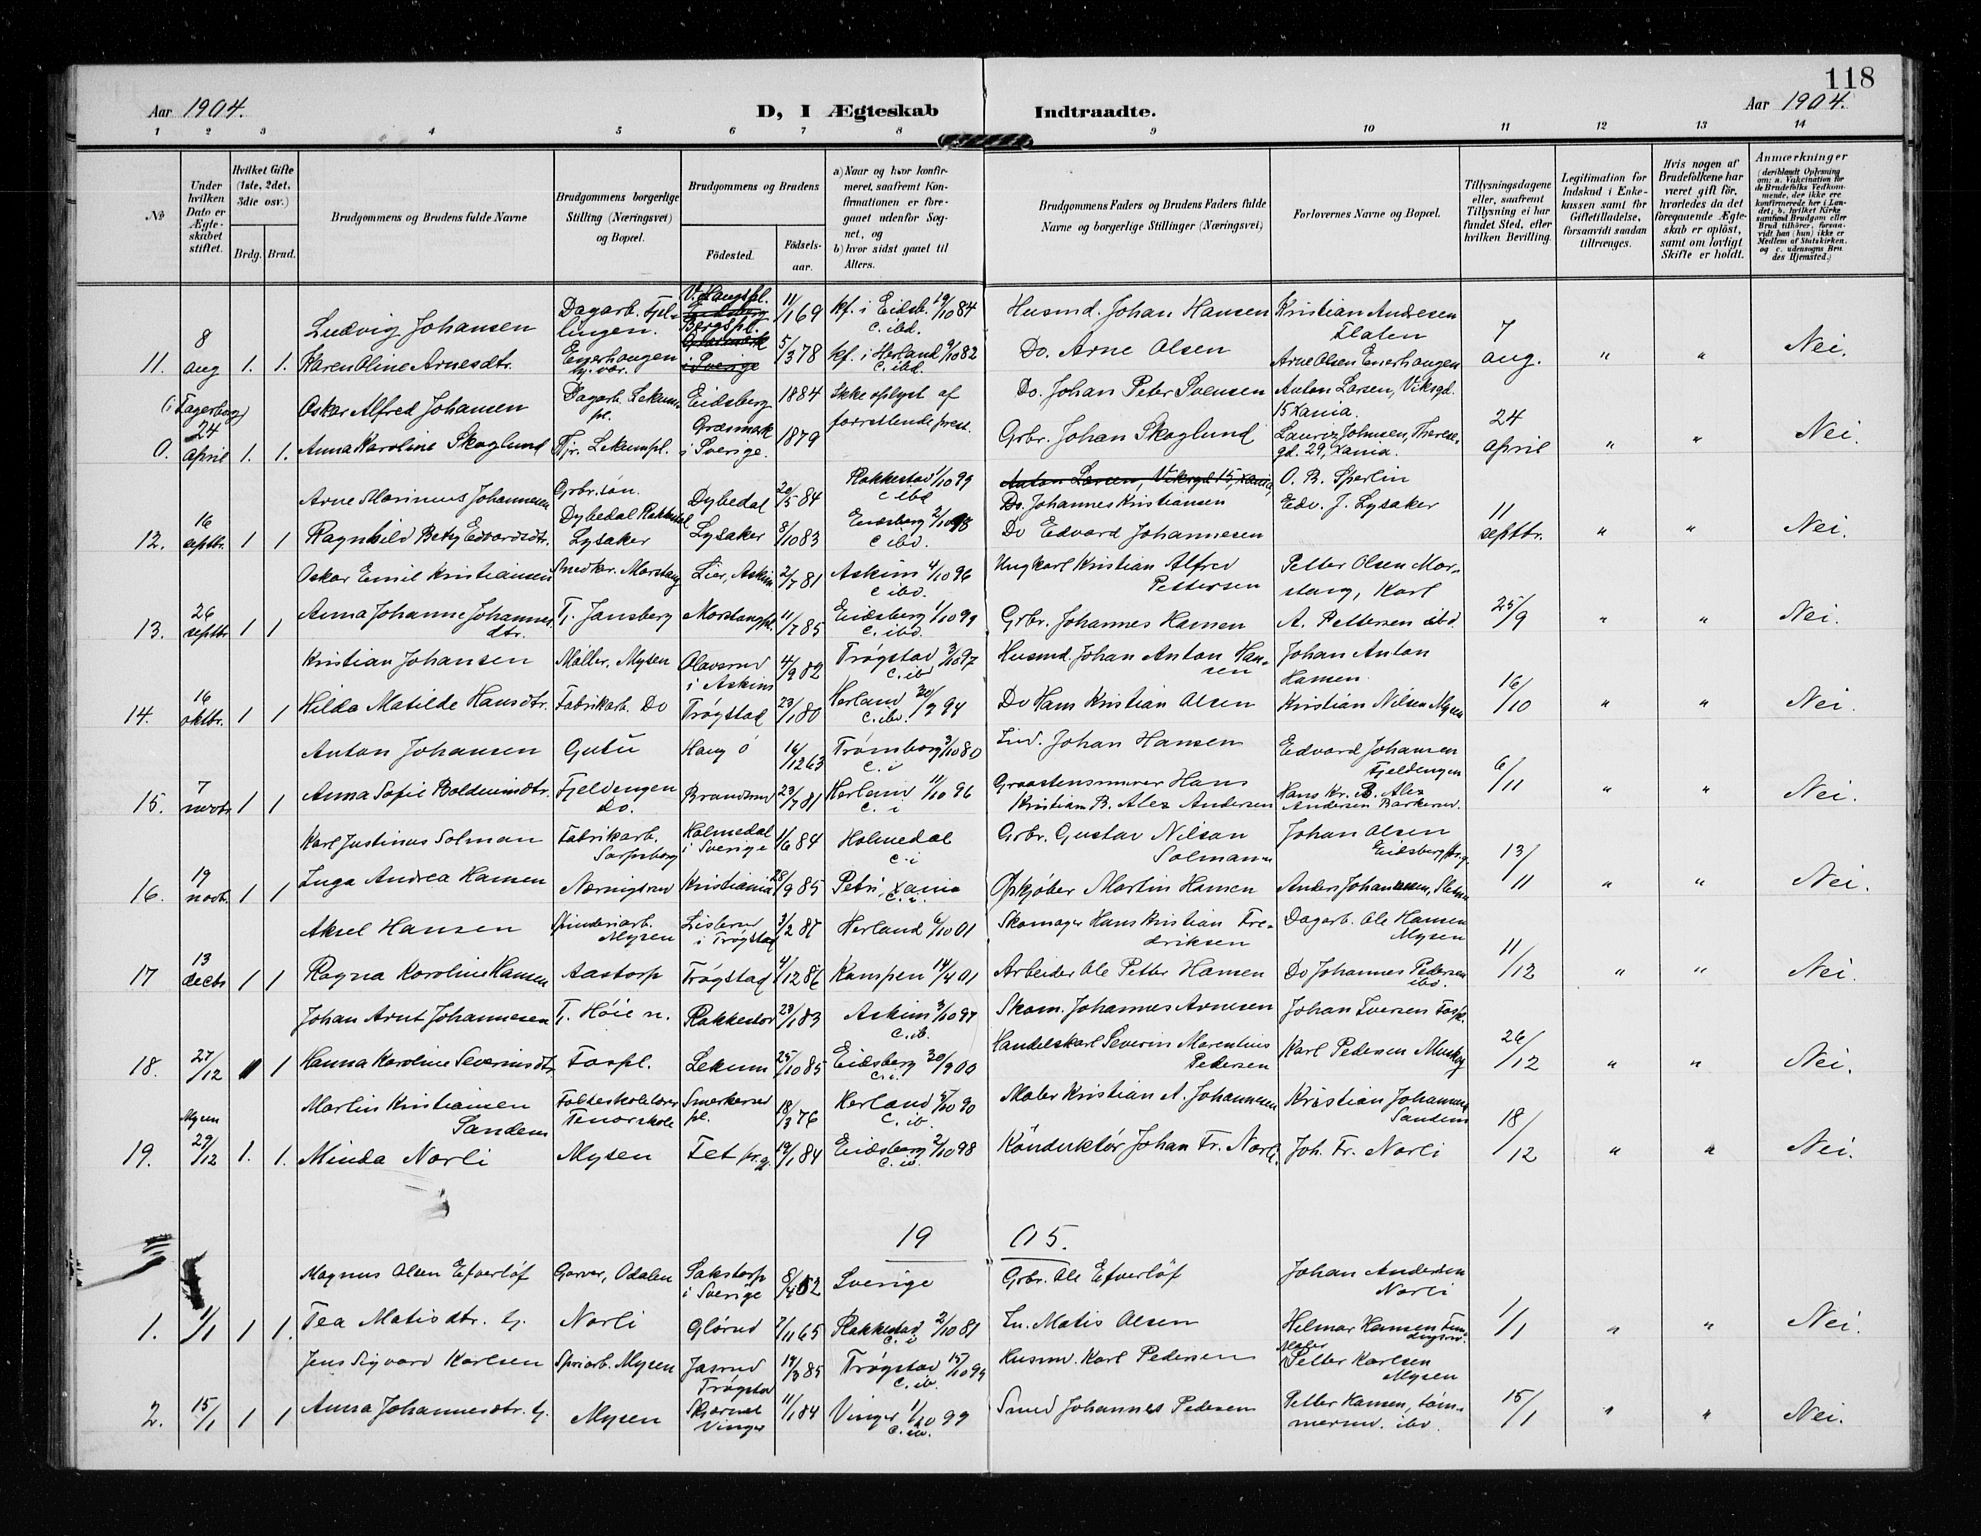 118
Aar 1904. D, I Ægteskab Indtraadte. Aar 1904.
1 2 3 4 5 6 7 8 9 10 11 12 13 14
№
Under hvilken Dato er Ægteskabet stiftet.
Hvilket Gifte (1ste, 2det, 3die osv.)
Brdg. Brud.
Brudgommens og Brudens fulde Navne
Brudgommens borgerlige Stilling (Næringsvei) og Bopæl.
Brudgommens og Brudens
Fødested. Fødselsaar.
a) Naar og hvor konfirmeret, saafremt Konfirmationen er foregaaet udenfor Sognet, og
b) hvor sidst gaaet til Alters.
Brudgommens Faders og Brudens Faders fulde Navne og borgerlige Stillinger (Næringsvei)
Forlovernes Navne og Bopæl.
Tillysningsdagene eller, saafremt Tillysning ei har fundet Sted, efter hvilken Bevilling.
Legitimation for Indskud i Enkekassen samt for Giftetilladelse, forsaavidt saadan tiltrænges.
Hvis nogen af Brudefolkene har været gift før, hvorledes da det foregaaende Ægteskab er opløst, samt om lovligt Skifte er holdt.
Anmærkninger (deriblandt Oplysning om: a. Vakcination for de Brudefolks Vedkommende, der ikke ere konfirmerede her i Landet; b. hvilket Kirkesamfund Brudgom eller Brud tilhører, forsaavidt han (hun) ikke er Medlem af Statskirken, og c. udensogns Brudes Hjemsted.)
Ludvig Johansen Dagarb. Fjellingen. V. Haugspl. 11/1 69 kf. i Eidsb. 19/10 84 c. ibd. Husmd. Johan Hansen Kristian Andresen Flaten
11. 8 aug 1. 1. Karen Oline Arnesdtr. Enerhaugen Bergspl. 5/3 78 kf. i Herland 9/10 82 c. ibd. Do. Arne Olsen Arne Olsen Enerhaugen 7 aug. " " Nei.
Oskar Alfred Johansen Dagarb. Lekumspl. Eidsberg 1884 Ikke oplyst af forrettende prest. Do. Johan Peter Svensen Anton Larsen, Viksgd. 15 Xania.
0. (i Fagerborg) 24 april 1. 1. Anna Karoline Skoglund Tj. Lekumpl. Græsmark i Sverige. 1879 Grbr. Johan Skoglund Lauriz Johnsen, Theresegd. 29, Xania. 24 april " " Nei.
Arne Marinius Johannesen Grbr. søn. Dybedal Rakkestad Dybedal 20/5 84 Rakkestad 1/10 99 c ibd Anton Larsen, Viksgd 15, Xania, Do. Johannes Kristiansen O. B. Sperlin
12. 16 septbr. 1 1 Ragnhild Betzy Edvardsdtr. Lysaker Lysaker 8/10 83 Eidsberg 2/10 98 c ibd. Do Edvard Johannesen Edv. J. Lysaker 11 septbr. " " Nei.
Oskar Emil Kristiansen Smedkr. Morstang Lier, Askim 2/7 81 Askim 4/10 96 c ibd. Ungkarl Kristian Alfred Pettersen Petter Olsen Morstang, Karl
13. 26 septbr 1 1 Anna Johanne Johannesdtr. Tj. Jansberg Morstangpl. 11/7 85 Eidsberg 1/10 99 c. ibd. Grbr. Johannes Hansen A. Pettersen ibd. 25/9 " " Nei.
Kristian Johansen Møller. Mysen Olavsrud i Askim 4/9 82 Trøgstad 3/10 97 c. ibd Husmd. Johan Anton Hansen Johan Anton Hansen.
14. 16 oktbr. 1 1 Hilda Matilde Hansdtr. Fabrikarb. Do Trøgstad 23/1 80 Herland 30/9 94 c. ibd. Do Hans Kristian Olsen Kristian Nilsen Mysen 16/10 " " Nei.
Anton Johansen Gutu Haug ø 16/12 63 Trømborg 3/10 80 c. i Ind. Johan Hansen Edvard Johansen Fjeldengen
15. 7 novbr. 1 1 Anna Sofie Boldevinsdtr. Fjeldengen Do. Brandsrud 23/7 81 Herland 11/10 96 c. i Graastensmurer Hans Kristian B. Alex Andersen Hans Kr. B. Alex Andersen Barkerud. 6/11 " " Nei.
Karl Justinus Solman Fabrikarb. Sarpsborg Holmedal i Sverige 1/6 84 Holmedal c. i Grbr. Gustav Nilson Solmann Johan Olsen Eidsberg prg.
16. 19 novbr. 1 1 Inga Andrea Hansen Nærnigsrud Kristiania 28/9 85 Petri, Xania c. i. Opkjøber Martin Hansen Anders Johannesen, 13/11 " " Nei.
Aksel Hansen Spinderiarb. Mysen Lislerud i Trøgstad 3/2 81 Herland 6/10 01 Skomager Hans Kristian Fredriksen Dagarb. Ole Hansen Mysen
17 13 decbr 1 1 Ragna Karoline Hansen Aastorp Trøgstad 4/12 86 Kampen 14/4 01 Arbeider Ole Petter Hansen Do Johannes Pedersen ibd. 11/12 " " Nei.
Johan Arnt Johannesen Tj. Høie n. Rakkestad 23/1 83 Askim 3/10 97 c. ib. Skom. Johannes Arnesen Johan Iversen Fospl.
18. 27/12 1 1 Hanna Karoline Severinsdtr Fospl. Lekum 25/10 85 Eidsberg 30/9 00 c. i. Handelskarl Severin Marentius Pedersen Karl Pedersen 26/12 " " Nei.
Martin Kristiansen Sandem Folkeskolelærer Tenorskole Smerkerud pl. 18/3 76 Herland 5/10 90 C. ib. Maler Kristian A. Johannesen Kristian Johannesen Sandem
19. Mysen 29/12 1. 1. Minda Norli Mysen Fet prg. 19/1 84 Eidsberg 2/10 98 c. ib. Konduktør Johan Fr. Norli. Joh. Fr. Norli 18/12 " " Nei.
19 05.
Magnus Olsen Efverlöf Garver, Odalen Sakstorp i Sverige 8/4 52 Sverige Grbr. Ole Efverlöf Johan Andersen Norli
1. 1/1 1 1. Tea Matisdtr. ty. Norli Glørud 7/11 65 Rakkestad 2/10 81 c. i Ln. Matis Olsen Hilmar Hansen 1/1 " " Nei.
Jens Sigvard Karlsen Spriarb. Mysen Jasrud Trøgstad 19/3 85 Trøgstad 15/10 99 c. ib. Husmd. Karl Pedersen Maler Petter Karlsen Mysen
2. 15/1 1 1 Anna Johannesdtr. ty. Mysen Skjørnes Vinger 11/1 84 Vinger 1/10 99 c. ib. Smed Johannes Pedersen Petter Hansen, tømmermd. ibd. 15/1 " " Nei.